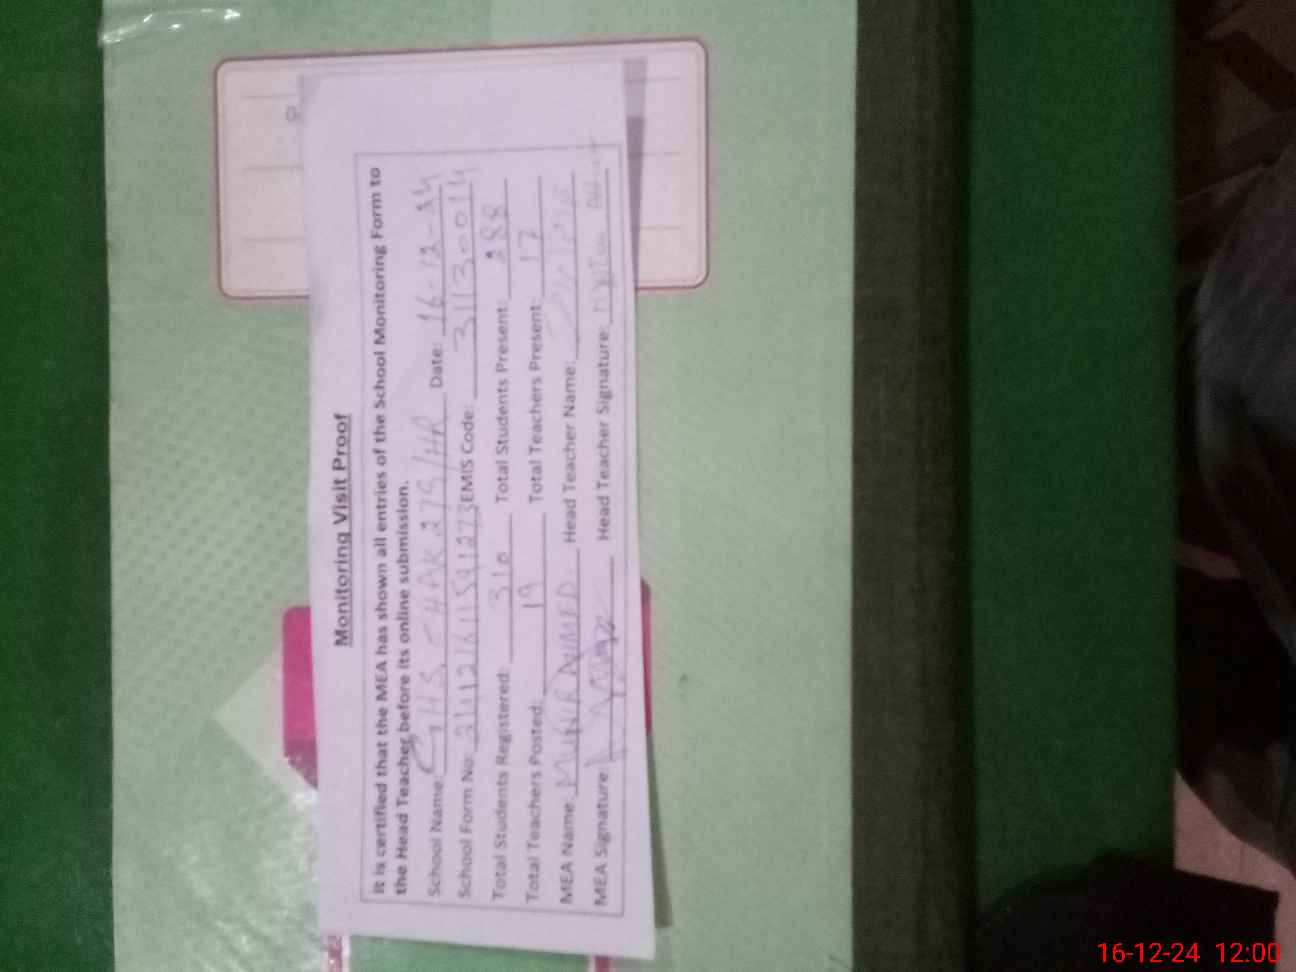 Monitoring Visit Proof
It is certified that the MEA has shown all entries of the School Monitoring Form to
the Head Teacher before its online submission.
School Name: GHS CHAK 279/HR Date: 16-12-24
School Form No: 24121611591273 EMIS Code: 31130014
Total Students Registered: 310 Total Students Present: 288
Total Teachers Posted: 19 Total Teachers Present: 17
MEA Name: MUNIR AHMED Head Teacher Name:
MEA Signature: Head Teacher Signature:
16-12-24 12:00